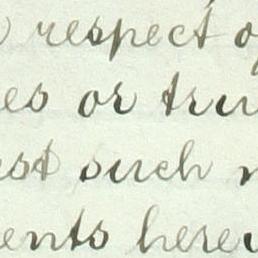 respect o
es or tru
est such
ents here